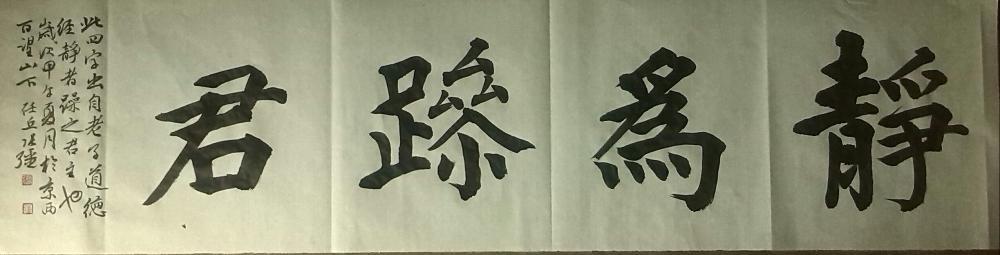 靜爲躁君
此四字出自老子道德
经靜者躁之君主也
歲次甲午夏月於京西
百望山下 任丘张强